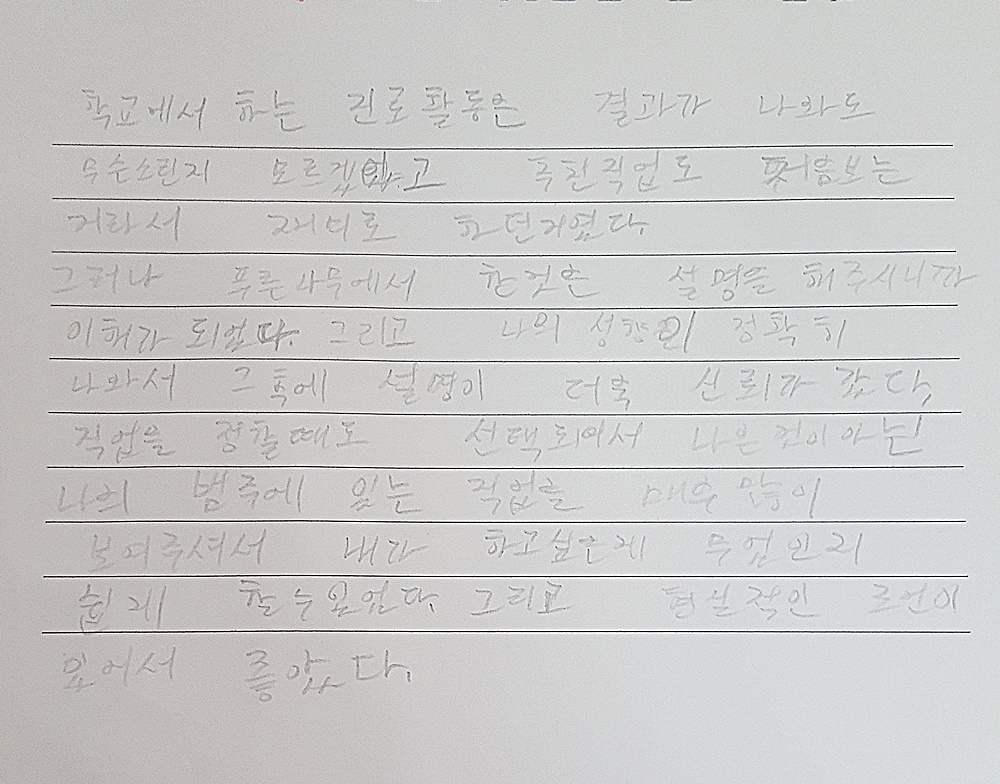 학교에서 하는 진로활동은 결과가 나와도
무슨소린지 모르겠고 추천직업도 처음보는
거라서 재미로 하던거였다.
그러나 푸른나무에서 한것은 설명을 해주시니까
이해가 되었다. 그리고 나의 성향이 정확히
나와서 그 후에 설명이 더욱 신뢰가 갔다.
직업을 정할때도 선택되어서 나온것이아닌
나의 범주에 있는 직업을 매우 많이
보여주셔서 내가 하고싶은게 무엇인지
쉽게 할수있었다. 그리고 현실적인 조언이
있어서 좋았다.